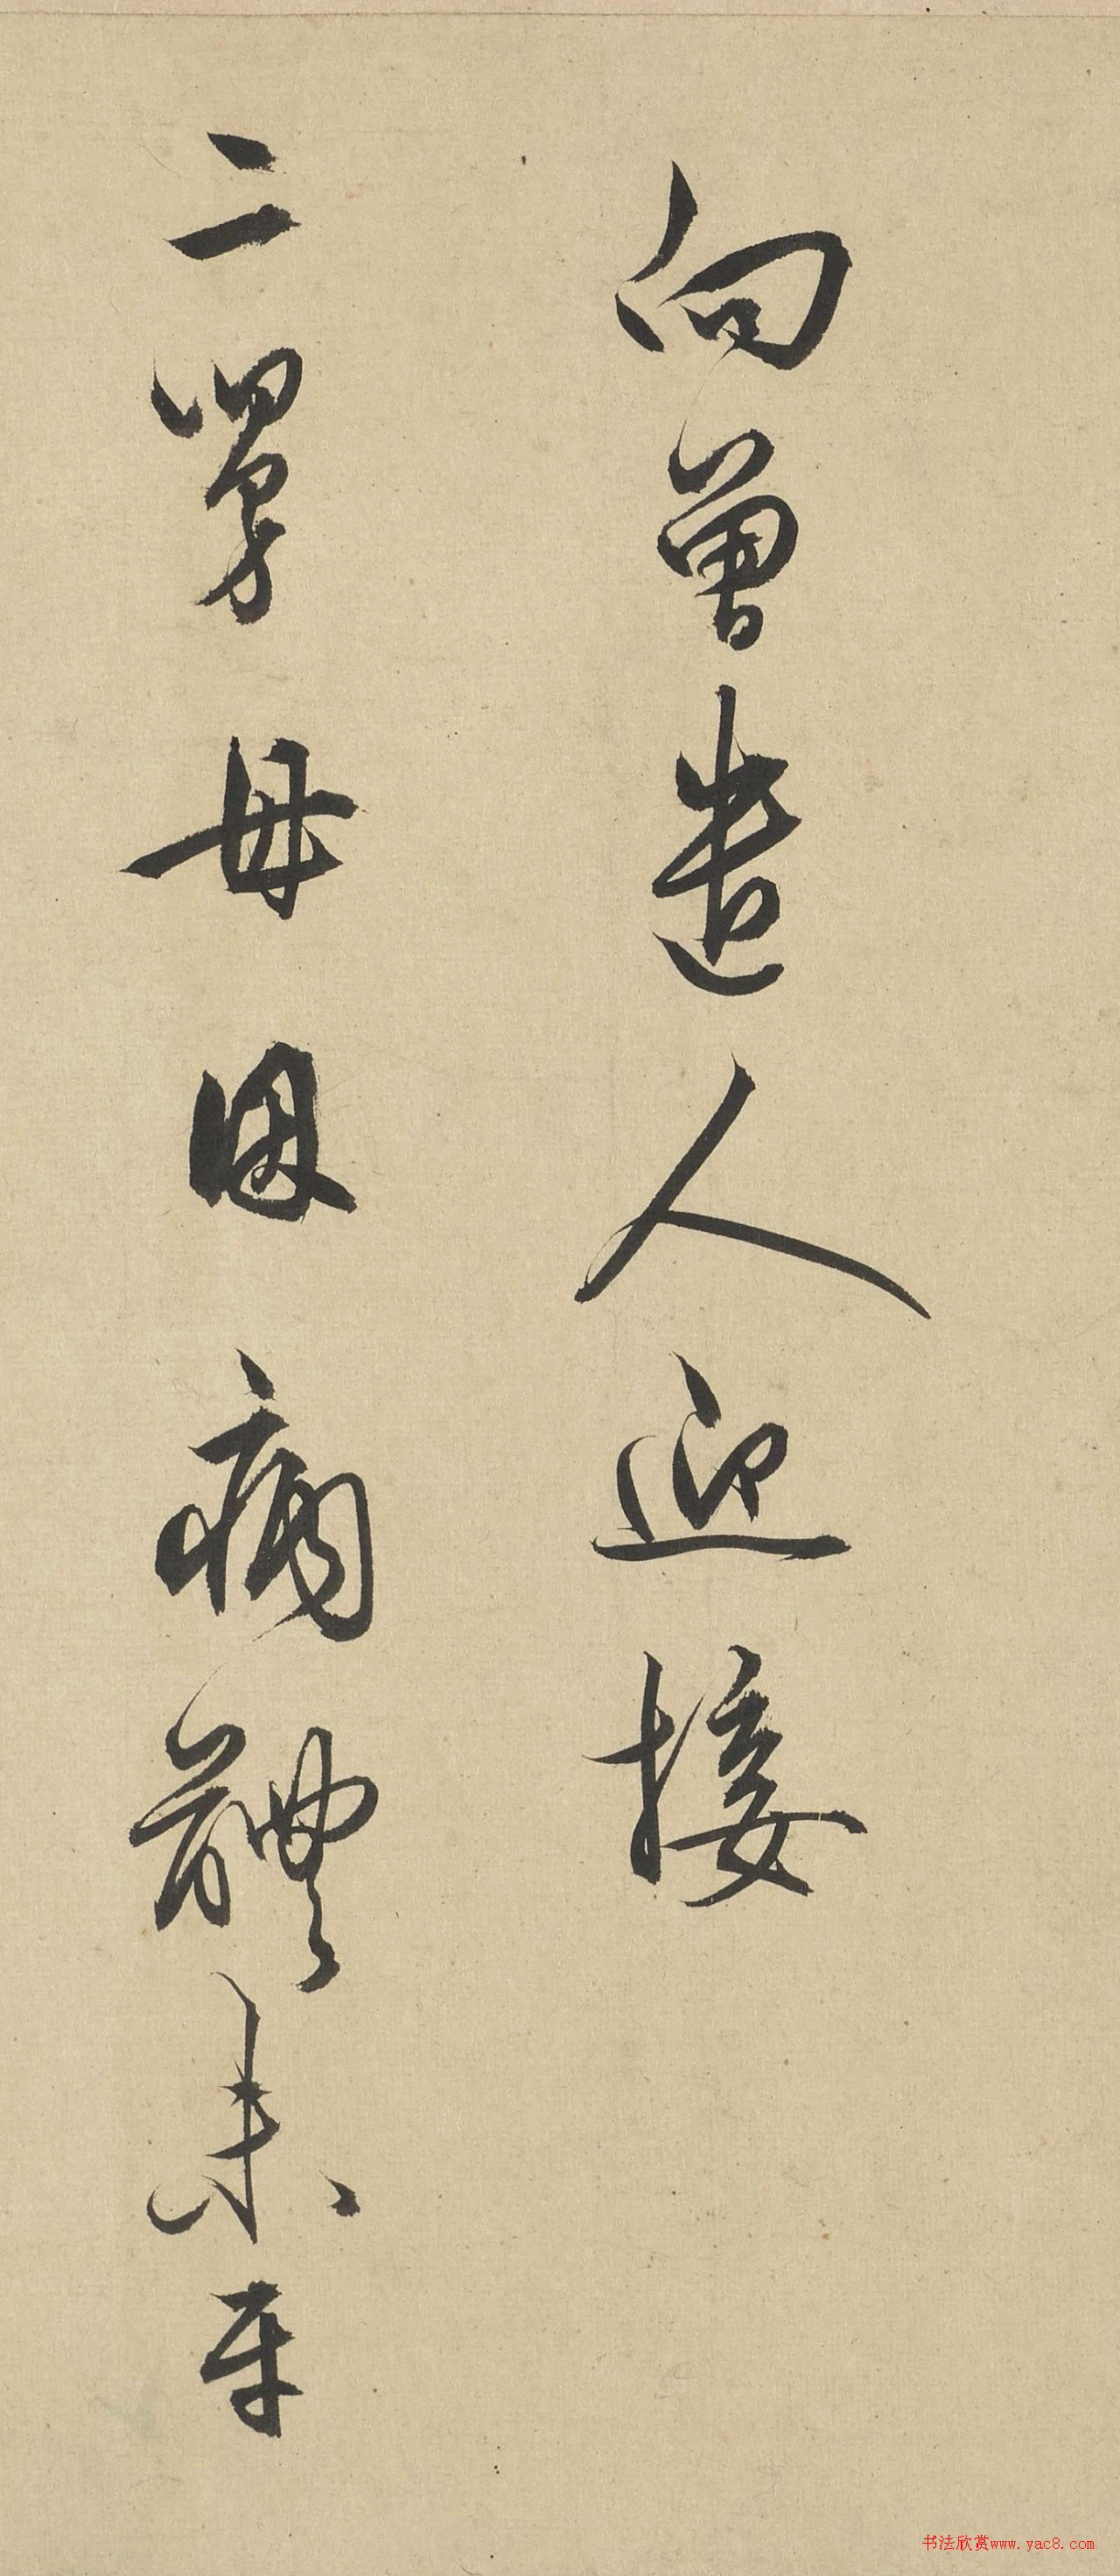 向曾遣人迎接
二舅母因病體未平
书法欣赏www.yac8.com